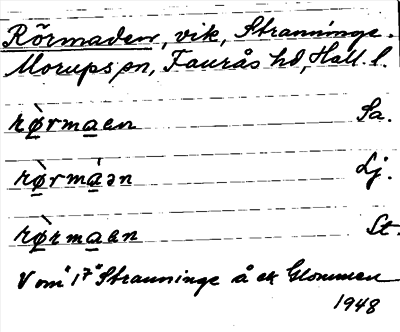 Rörmaden, vik, Stranninge.
Morups sn, Faurås hd, Hall. l.
rø̀rmaen Sa.
rø̀rmáən Lj.
rø̀rmaen St.
V om "17" Stranninge å ek Glommen
1948